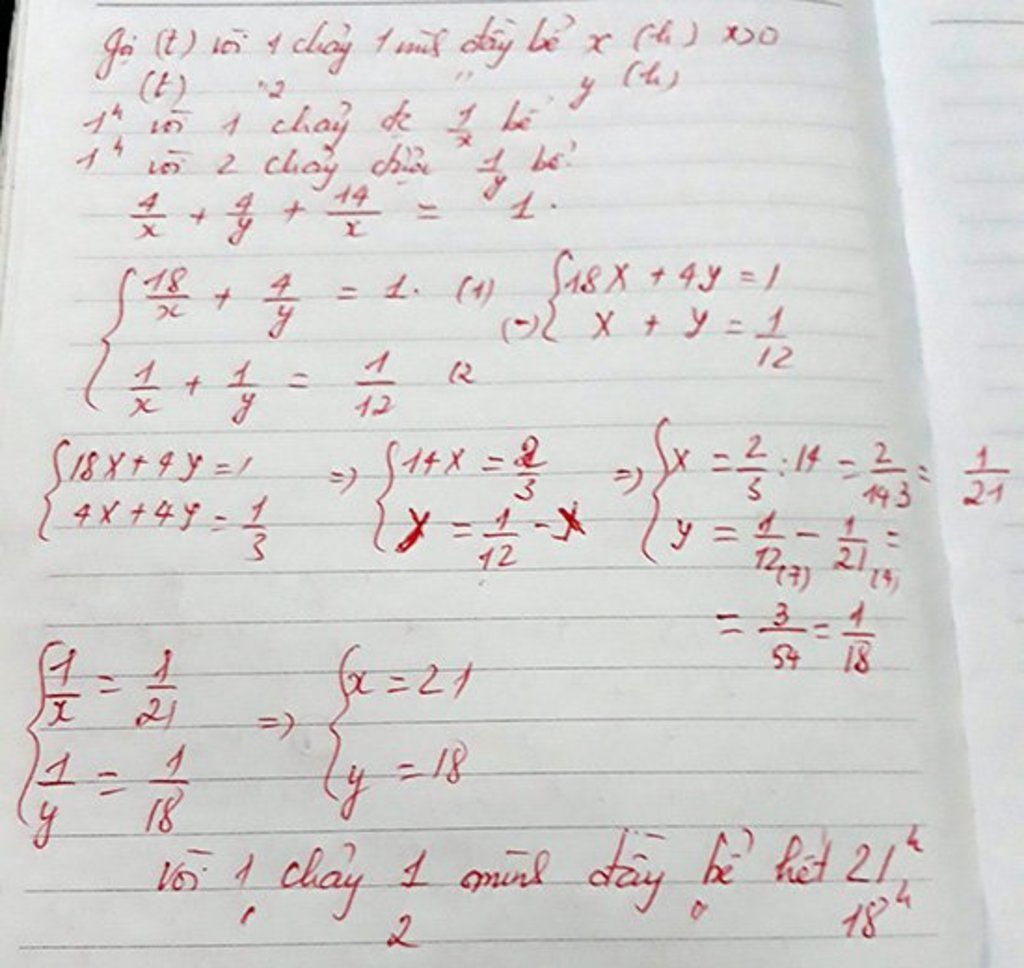 Gọi (t) vòi 1 chảy 1 mình đầy bể x (h) x>0
(t) " 2 " y (h)
1h vòi 1 chảy đc 1/x bể
1h vòi 2 chảy được 1/y bể
4/x + 4/y + 14/x = 1.
{ 18/x + 4/y = 1. (1) (-) { 18X + 4Y = 1
{ 1/x + 1/y = 1/12 (2 { X + Y = 1/12
{ 18X + 4Y = 1 => { 14X = 2/3 => { X = 2/3 : 14 = 2/14.3 = 1/21
{ 4X + 4Y = 1/3 { Y = 1/12 - X { Y = 1/12(7) - 1/21(4) =
= 3/54 = 1/18
{ 1/x = 1/21 => { x = 21
{ 1/y = 1/18 { y = 18
vòi 1 chảy 1 mình đầy bể hết 21h
2 18h